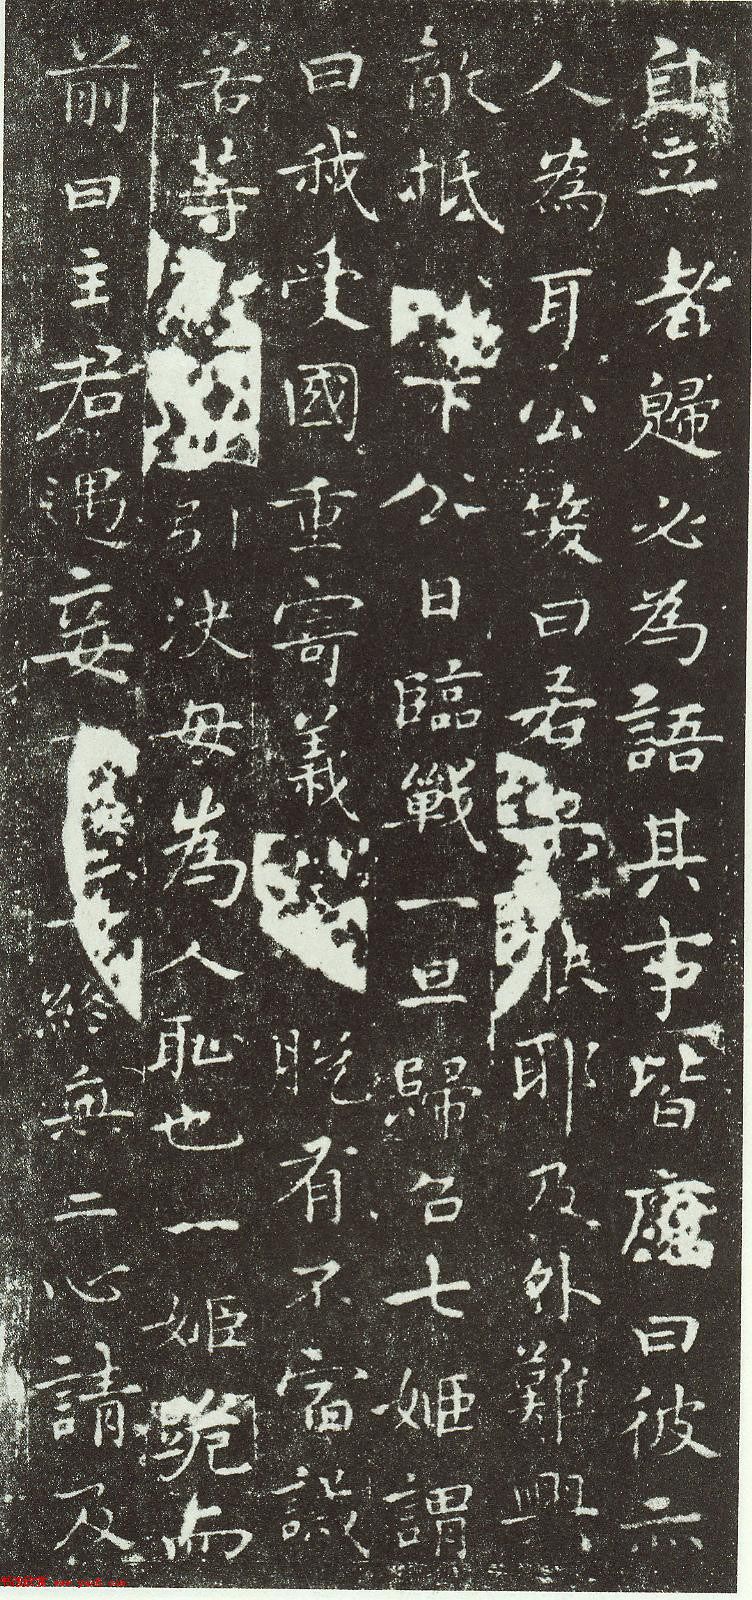 自立者歸必為語其事皆應曰彼亦
人為耳公笑曰若耶及外難興
敵抵城下公日臨戰一旦歸召七姬謂
曰我受國重寄義脫有不宿誡
若等引決毋為人恥也一姬跽而
前曰主君遇妾終無二心請及